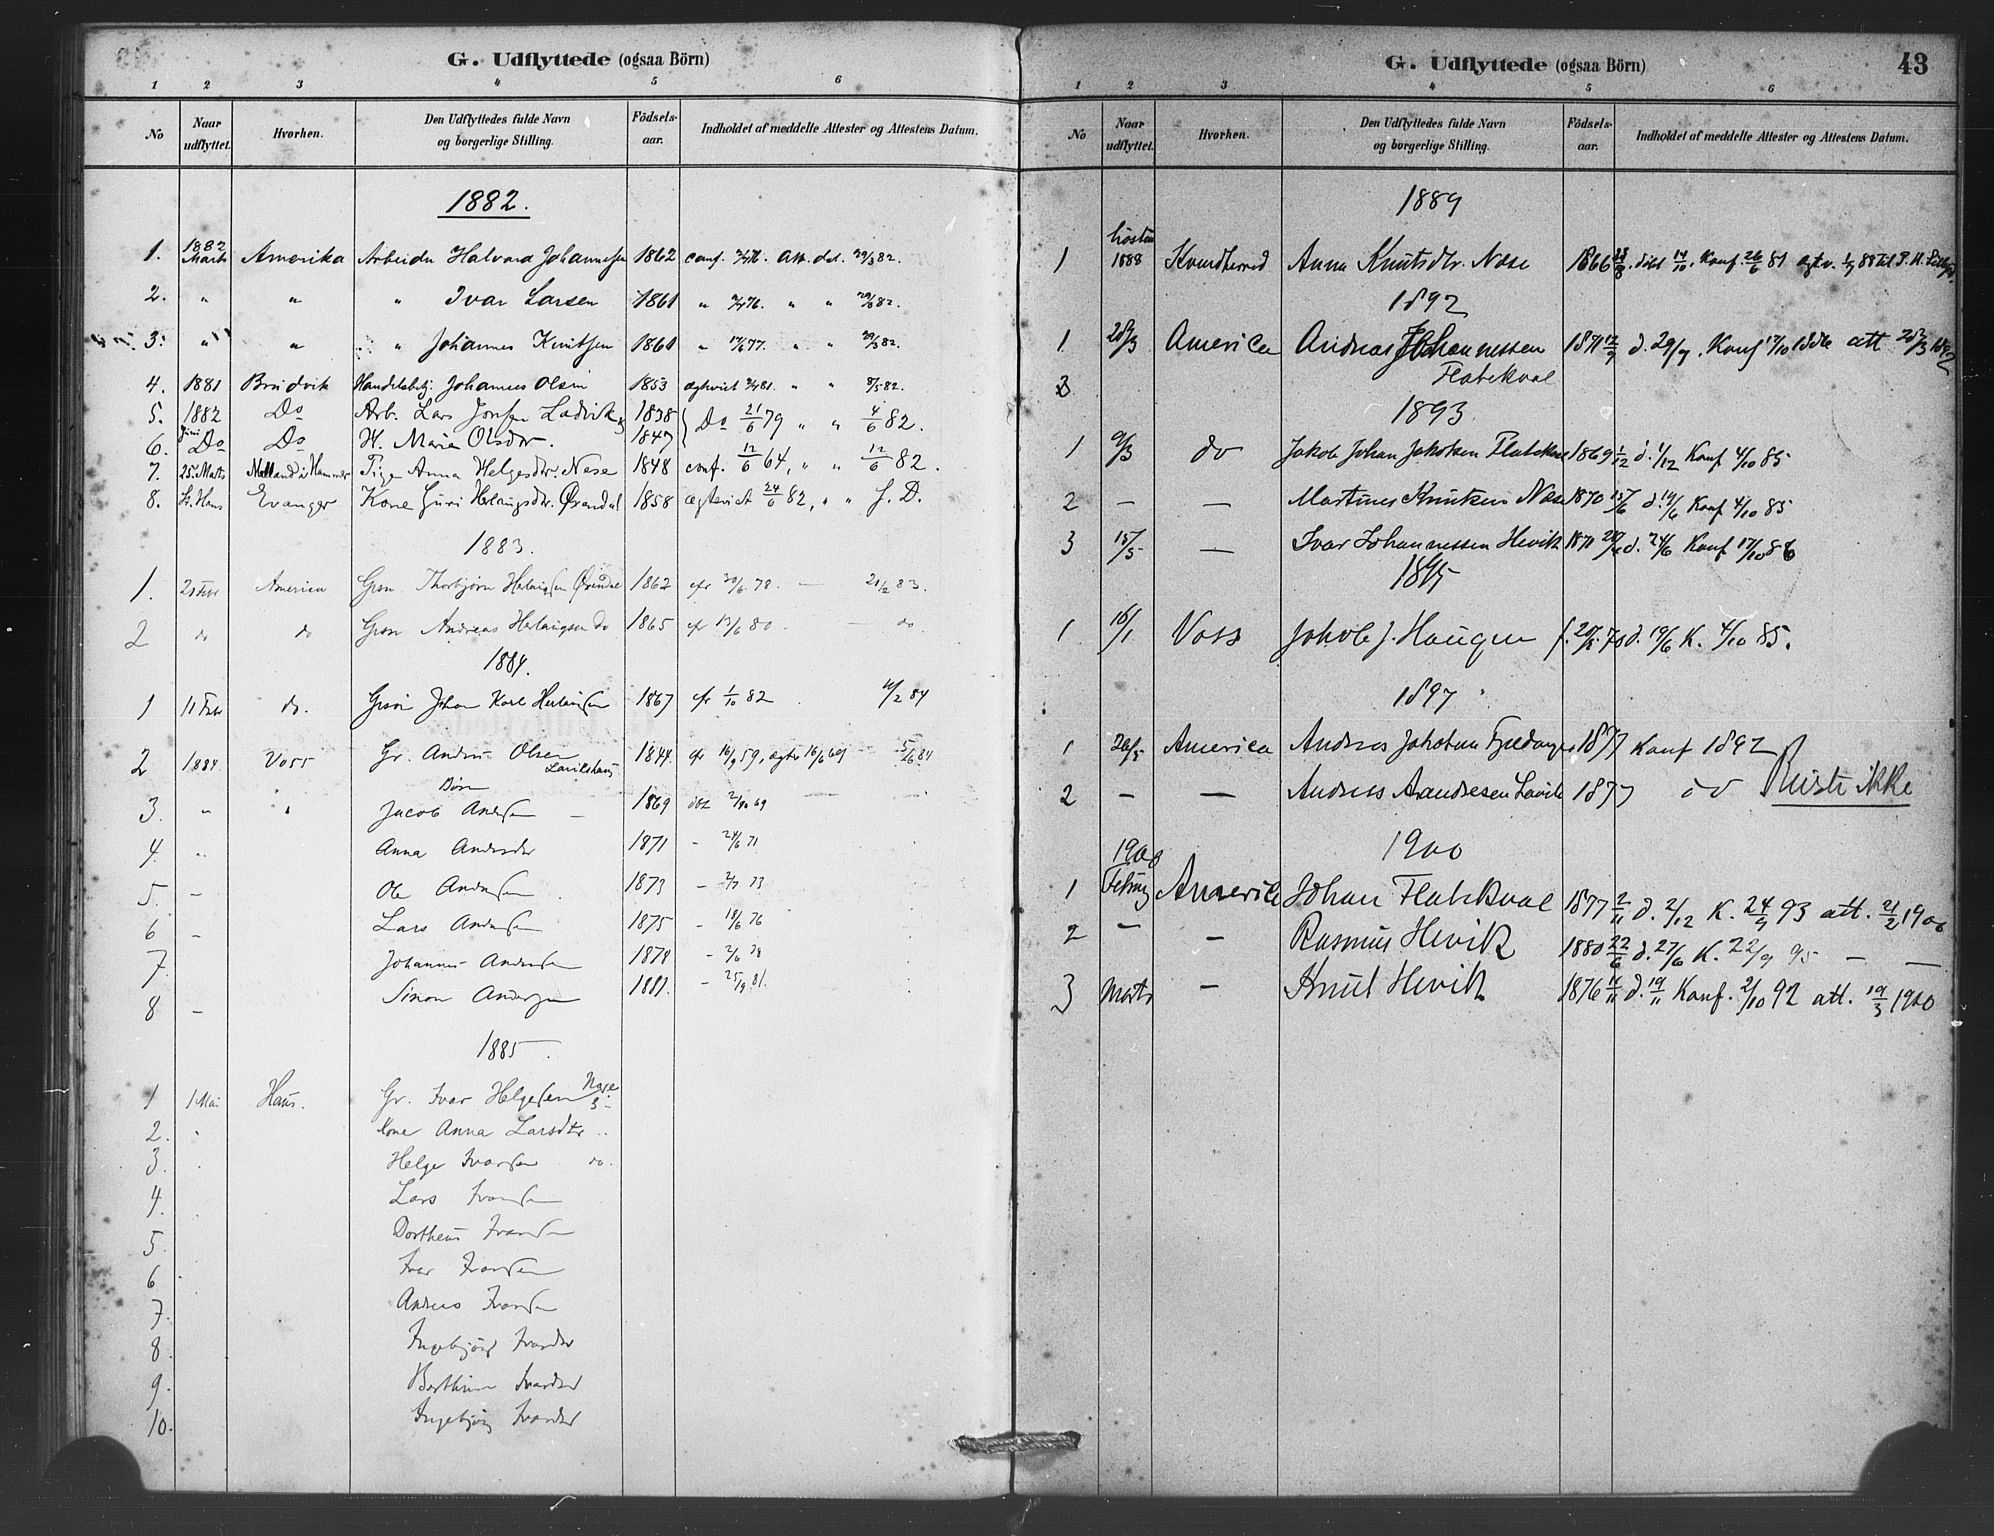 G. Udflyttede (ogsaa Börn)
1 2 3 4 5 6
No Naar udflyttet. Hvorhen. Den Udflyttedes fulde Navn og borgerlige Stilling. Födsels-aar. Indholdet af meddelte Attester og Attestens Datum.
1882.
1. 1882 Marts Amerika Arbeider Halvard Johannessen 1862 conf. att. dat. 29/3 82.
2. " " " Ivar Larsen 1861 " " " 29/3 82.
3. " " " Johannes Knutsen 1861 " " " 29/3 82.
4. 1881 Bruvik Johannes Olsen 1853 " " 8/5 82.
5. 1882 Do Arb. Lars Jonsen Ladvik 1838 Do 21/6 79 " " 4/6 82.
6. Juni Do Do H. Marie Olsdtr. 1847
7. 25 Marts Pige Anna Helgesdtr. Nese 1848 conf. 12/6 64, " " 12/6 82.
8. St. Hans Evanger Kone Guri Herlaugsdtr. Øxendal 1858 ægteviet 24/6 82, " " J. D.
1883.
1. America Gsøn Thorbjørn Herlaugsen Øxendal 1862 78. — 21/2 83.
2 do do Gsøn Andreas Herlaugsen do 1865 80. — do.
1884.
1 11 Febr do. Gsøn Johan Karl Herlaugsen 1867 1/10 82 11/2 84
2 1884 Voss Gr. Andreas Olsen 1844 59, 69 — 5/6 84
Børn
3. " " Jacob Andersen — 1869 døbt 69
4. " Anna Andersdtr 1871 - 24/6 71
5. — Ole Andersen 1873 - 73
6 — Lars Andersen 1875 - 18/6 76
7. Johannes Andersen 1878 - 2/6 78
8 — Simon Andersen 1881. - 25/9 81.
1885.
1 1 Mai Haus. Gr. Ivar Helgesen Nese
2. " Kone Anna Larsdtr
3. Helge Ivarsen do.
4. Lars Ivarsen
5. Ivarsen
6. Ivar Ivarsen
7. Andreas Ivarsen
8. Ingebjørg Ivarsdtr
9. Ivarsdtr
10. Ingebjørg Ivarsdtr
G. Udflyttede (ogsaa Börn) 43
1 2 3 4 5 6
No Naar udflyttet. Hvorhen. Den Udflyttedes fulde Navn og borgerlige Stilling. Födsels-aar. Indholdet af meddelte Attester og Attestens Datum.
1889
1 høsten 1888 Kvindherred Anna Knutsdtr. Nese 1866 Konf. 26/6 81
1892
1. 28/3 America Andreas Johannessen 1871 d. 29/9. Konf 17/10 1886 att 28/3 1892
Flatekval
1893
1 9/3 do Jakob Johan Jakobsen Flatekval 1869 d. 1/12 Konf 4/10 85
2 — — Martines Knutsen Nese 1870 15/6 d. 19/6 Konf 4/10 85
3 15/5 — Ivar Johannessen Hevik 1871 d. 24/6 Konf 17/10 86
1895
1 16/1 Voss Jakob J. Haugen f. 70 d. 19/6 K. 4/10 85.
1897
1 26/5 America Andreas 1877 Konf 1892
2 — — Andreas Andresen Lavik 1877 do Reiste ikke
1900
1 1900 Februar America Johan Flatekval 1877 2/11 d. 2/12 K. 24/9 93 att. 21/2 1900
2 — — Rasmus Hevik 1880 22/6 d. 27/6 K. 22/9 95 — —
3 Marts — Knut Hevik 1876 11/11 d. 19/11 Konf. 2/10 92 att. 19/3 1900